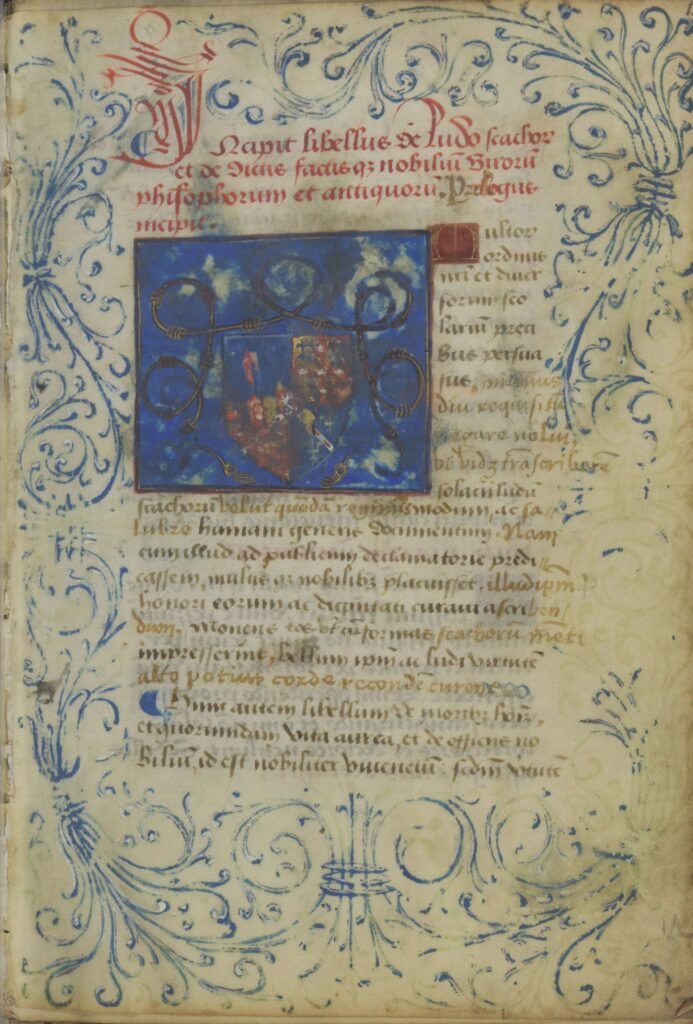 Incipit libellus de Ludo scachor
et de dictis factis qz nobiliū virorū
phīsophorum et antiquorū. Prologus
incipit.
Multor
ordinis
nr̄i et diuer
sorum seco
lariū preci
bus persua
sus,
diu requisitu
negare nolui,
vt vidz trāscriberē
solaciī ludū
scachorū velut quendā regiminis modum, ac sa
lubre humani generis documentum. Nam
cum illud ad publicum declamatorie predi
cassem, multis qz nobilibz placuisset, illud ip̄m
honori eorum ac dignitati curaui ascriben
dum. Monens eos vt cū formas scachorū mēti
impresserint, bellum ip̄m ac ludi virtutē
alto potius corde recondere
Hunc autem libellum de moribz hoīm,
et quorundam vita aurea, et de officijs no
bilium, id est nobiliter viuencium